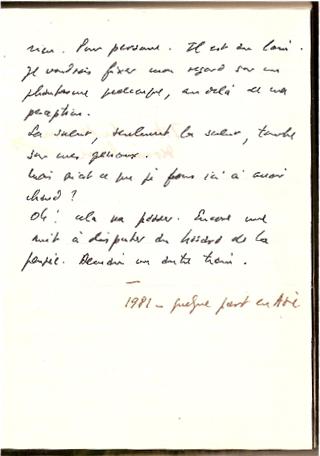 rien. Pour personne. Il est du loin.
Je voudrais fixer mon regard sur un
phantasme quelconque, au delà de ma
perception.
La sueur, seulement la sueur, tombe
sur mes genoux.
Mais qu'est ce que je fous ici à avoir
chaud?
Oh! cela va passer. Encore une
nuit à disputer du hasard de la
pensée. Demain un autre train.
1981 - quelque part en Asie